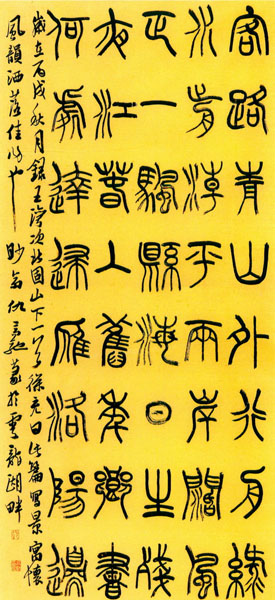 客路青山外行舟綠
水前潮平兩岸闊風
正一颿縣海日生殘
夜江萅入舊年鄉書
何處達歸雁洛陽邊
歲在丙戌秋月錄王灣次北固山下一首徐充曰此篇寫景寓懷
風韻洒落佳作也 仇篆於雲龍湖畔